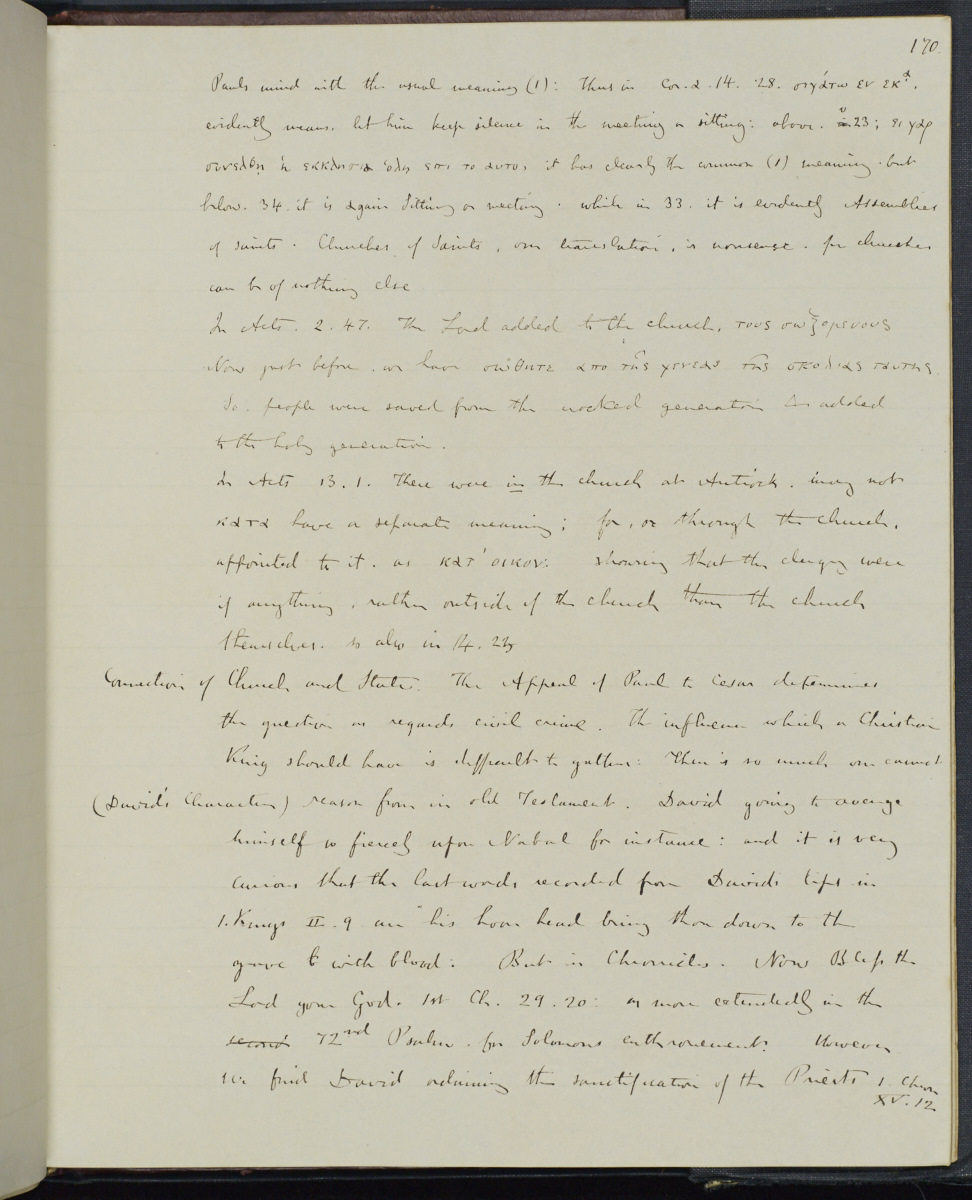 170.
Pauls mind with the usual meaning (1): Thus in Cor. 2. 14. 28. σιγάτω εν εκα.
evidently means. let him keep silence in the meeting or sitting: above. v 23; ει γαρ
συνελθη ἡ εκκλησια ὁλη επι το αυτο, it has clearly the common (1) meaning. but
below. 34. it is again Sitting or meeting. while in 33. it is evidently Assemblies
of saints. Churches of Saints, our translation, is nonsense. for churches
can be of nothing else
In Acts. 2. 47. The Lord added to the church, τους σωζομενους
Now just before. we have σώθητε απο της γενεας της σκολιας ταυτης.
So. people were saved from the crooked generation & added
to the holy generation.
In Acts 13. 1. There were in the church at Antioch. may not
κατα have a separate meaning; for, or through the church,
appointed to it. as κατ' οικον: showing that the clergy were
if anything, rather outside of the church than the church
themselves. so also in 14. 23
Connection of Church and State. The Appeal of Paul to Cesar determines
the question as regards civil crime. The influence which a Christian
King should have is difficult to gather: There is so much one cannot
(David's Character) reason from in old Testament. David going to avenge
himself so fiercely upon Nabal for instance: and it is very
curious that the last words recorded from Davids lips in
1. Kings II. 9 are "his hoar head bring thou down to the
grave with blood: But in Chronicles. Now Bless the
Lord your God. 1st Ch. 29. 20: as more extendedly in the
second 72nd Psalm. for Solomons enthronement. However
we find David ordaining the sanctification of the Priests 1. Chron
XV. 12